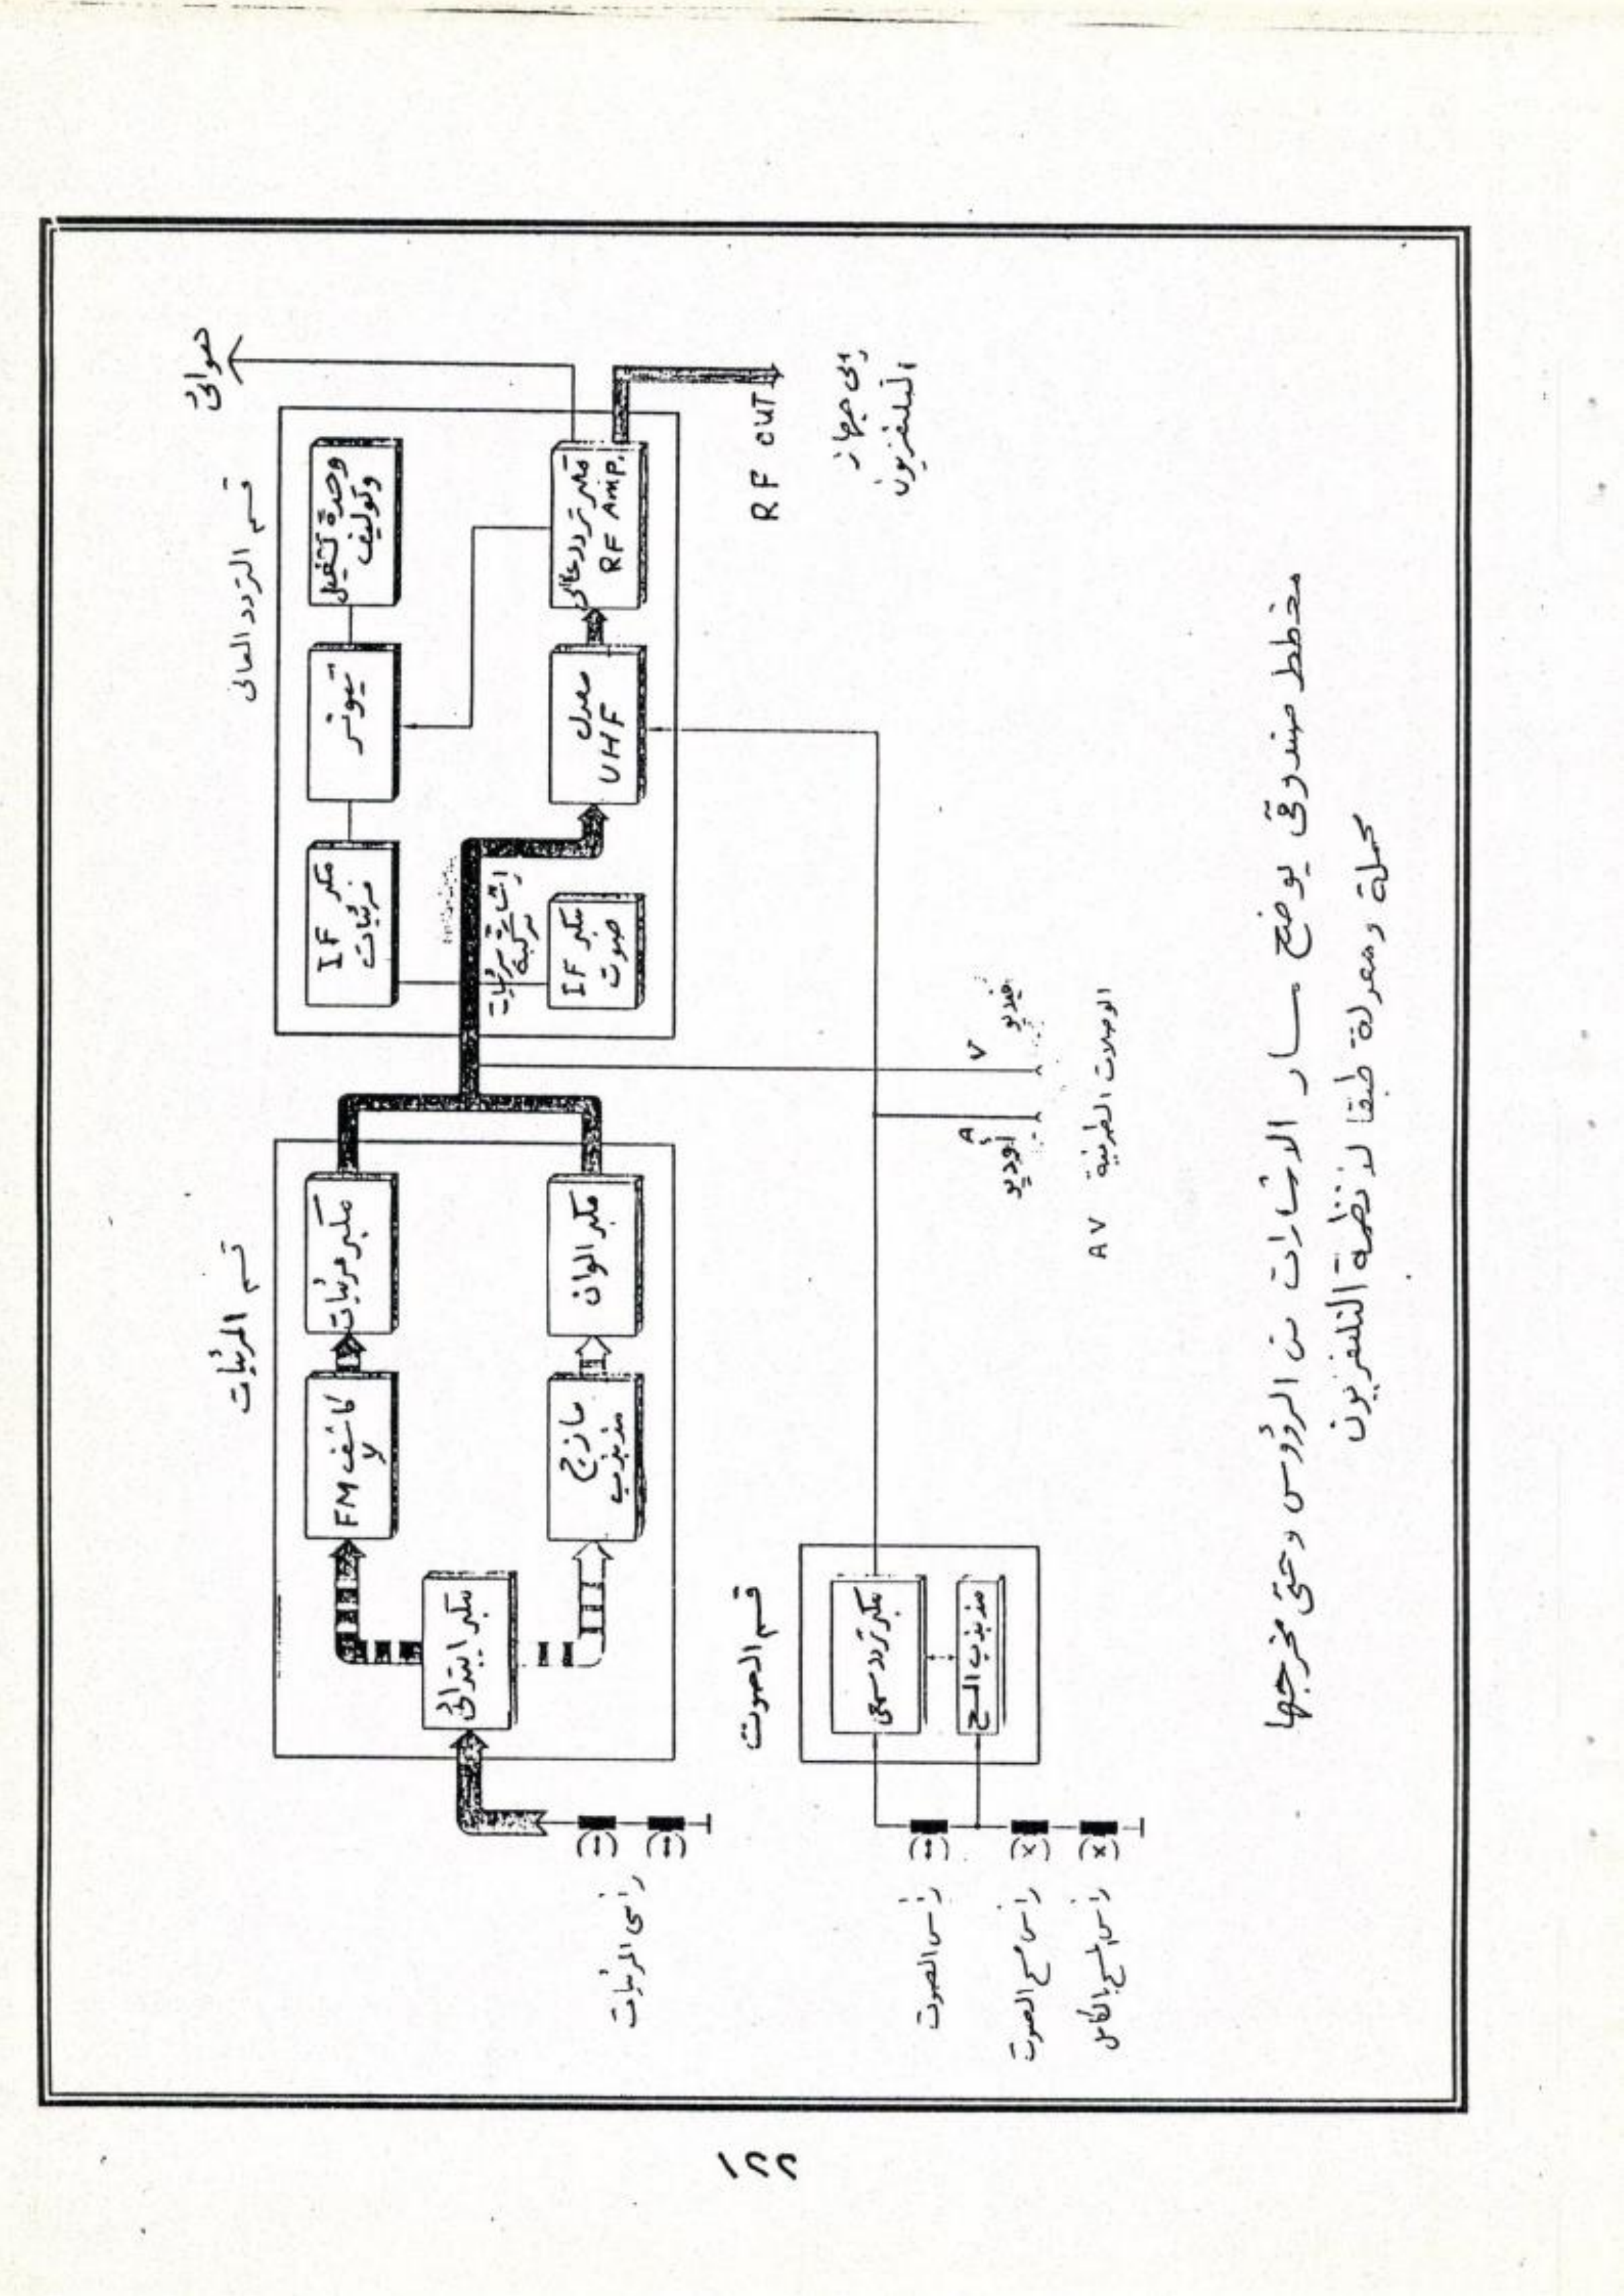 قسم المرئيات
قسم التردد العالى
هوائى
مكبر ابتدائى
كاشف
لا FM
مكبر مرئيات
مازج
مذبذب
مكبر الوان
مكبر IF
مرئيات
تيونر
وحدة تشغيل
وتوليف
إشارة مرئيات
مركبة
مكبر IF
صوت
معدل
UHF
مكبر تردد عالى
RF Amp.
RF OUT
إلى جهاز
التليفزيون
رأسى المرئيات
قسم الصوت
مكبر تردد سمعى
مذبذب المسح
رأس الصوت
رأس مسح الصوت
رأس المسح الكامل
A
أوديو
V
فيديو
AV الوصلات الطرفية
مخطط صندوقى يوضح مسار الاشارات من الرؤوس وحتى مخرجها
محملة ومعدلة طبقا لانظمة التلفزيون
١٢٢